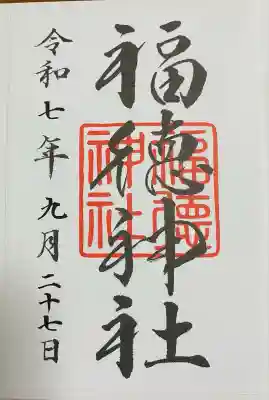 福徳神社
福徳
神社
令和七年 九月二十七日